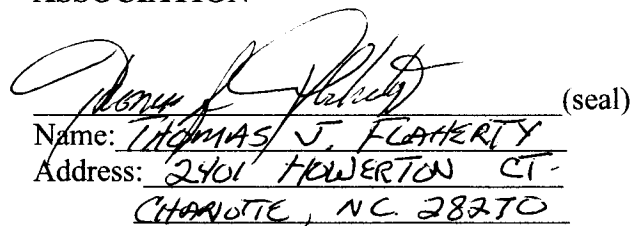 ASSOCIATION
(seal)
Name: THOMAS J. FLAHERTY
Address: 2401 HOWERTON CT.
CHARLOTTE, NC. 28270